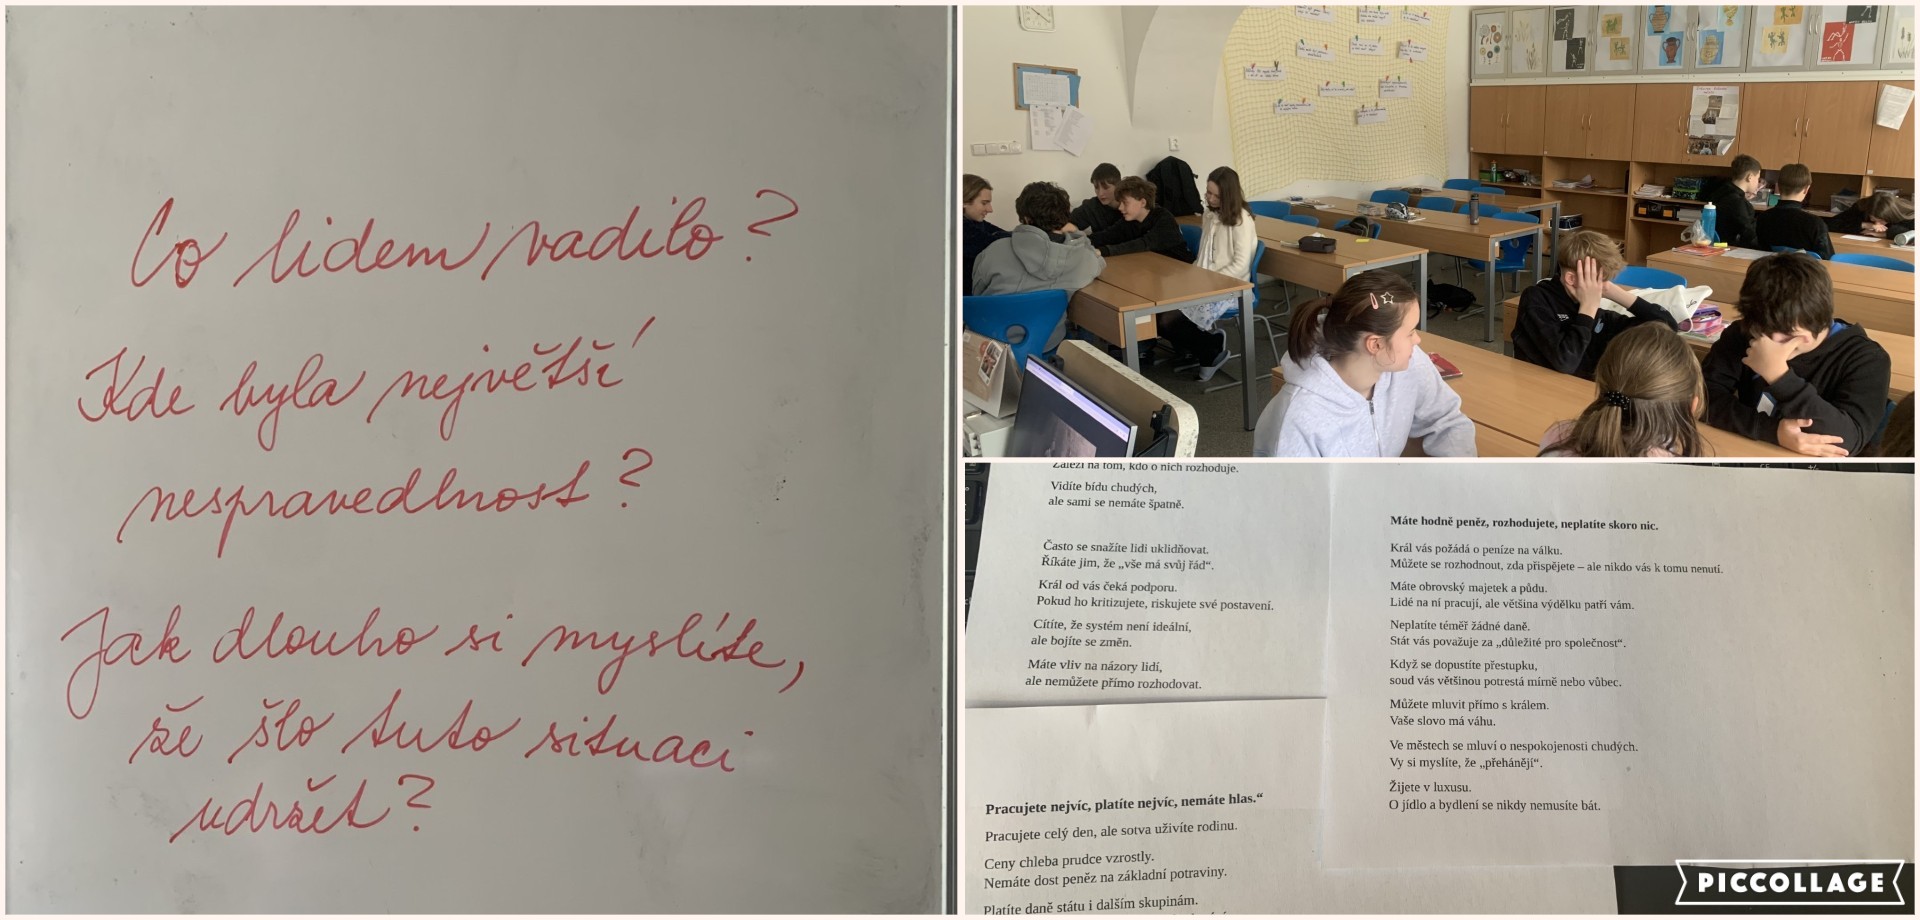 Co lidem vadilo?
Kde byla největší
nespravedlnost?
Jak dlouho si myslíte,
že šlo tuto situaci
udržet?
Záleží na tom, kdo o nich rozhoduje.
Vidíte bídu chudých,
ale sami se nemáte špatně.
Často se snažíte lidi uklidňovat.
Říkáte jim, že „vše má svůj řád“.
Král od vás čeká podporu.
Pokud ho kritizujete, riskujete své postavení.
Cítíte, že systém není ideální,
ale bojíte se změn.
Máte vliv na názory lidí,
ale nemůžete přímo rozhodovat.
Máte hodně peněz, rozhodujete, neplatíte skoro nic.
Král vás požádá o peníze na válku.
Můžete se rozhodnout, zda přispějete – ale nikdo vás k tomu nenutí.
Máte obrovský majetek a půdu.
Lidé na ní pracují, ale většina výdělku patří vám.
Neplatíte téměř žádné daně.
Stát vás považuje za „důležité pro společnost“.
Když se dopustíte přestupku,
soud vás většinou potrestá mírně nebo vůbec.
Můžete mluvit přímo s králem.
Vaše slovo má váhu.
Ve městech se mluví o nespokojenosti chudých.
Vy si myslíte, že „přehánějí“.
Žijete v luxusu.
O jídlo a bydlení se nikdy nemusíte bát.
Pracujete nejvíc, platíte nejvíc, nemáte hlas.“
Pracujete celý den, ale sotva uživíte rodinu.
Ceny chleba prudce vzrostly.
Nemáte dost peněz na základní potraviny.
Platíte daně státu i dalším skupinám.
PICCOLLAGE